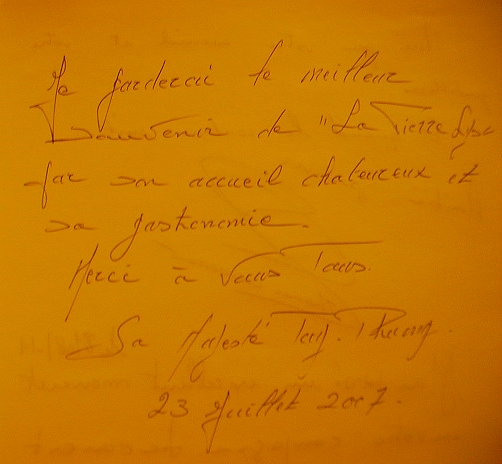 Je garderai le meilleur
Souvenir de "La Pierre
par son accueil chaleureux et
sa gastronomie.
Merci à Vous Tous.
Sa Majesté
23 Juillet 2007.